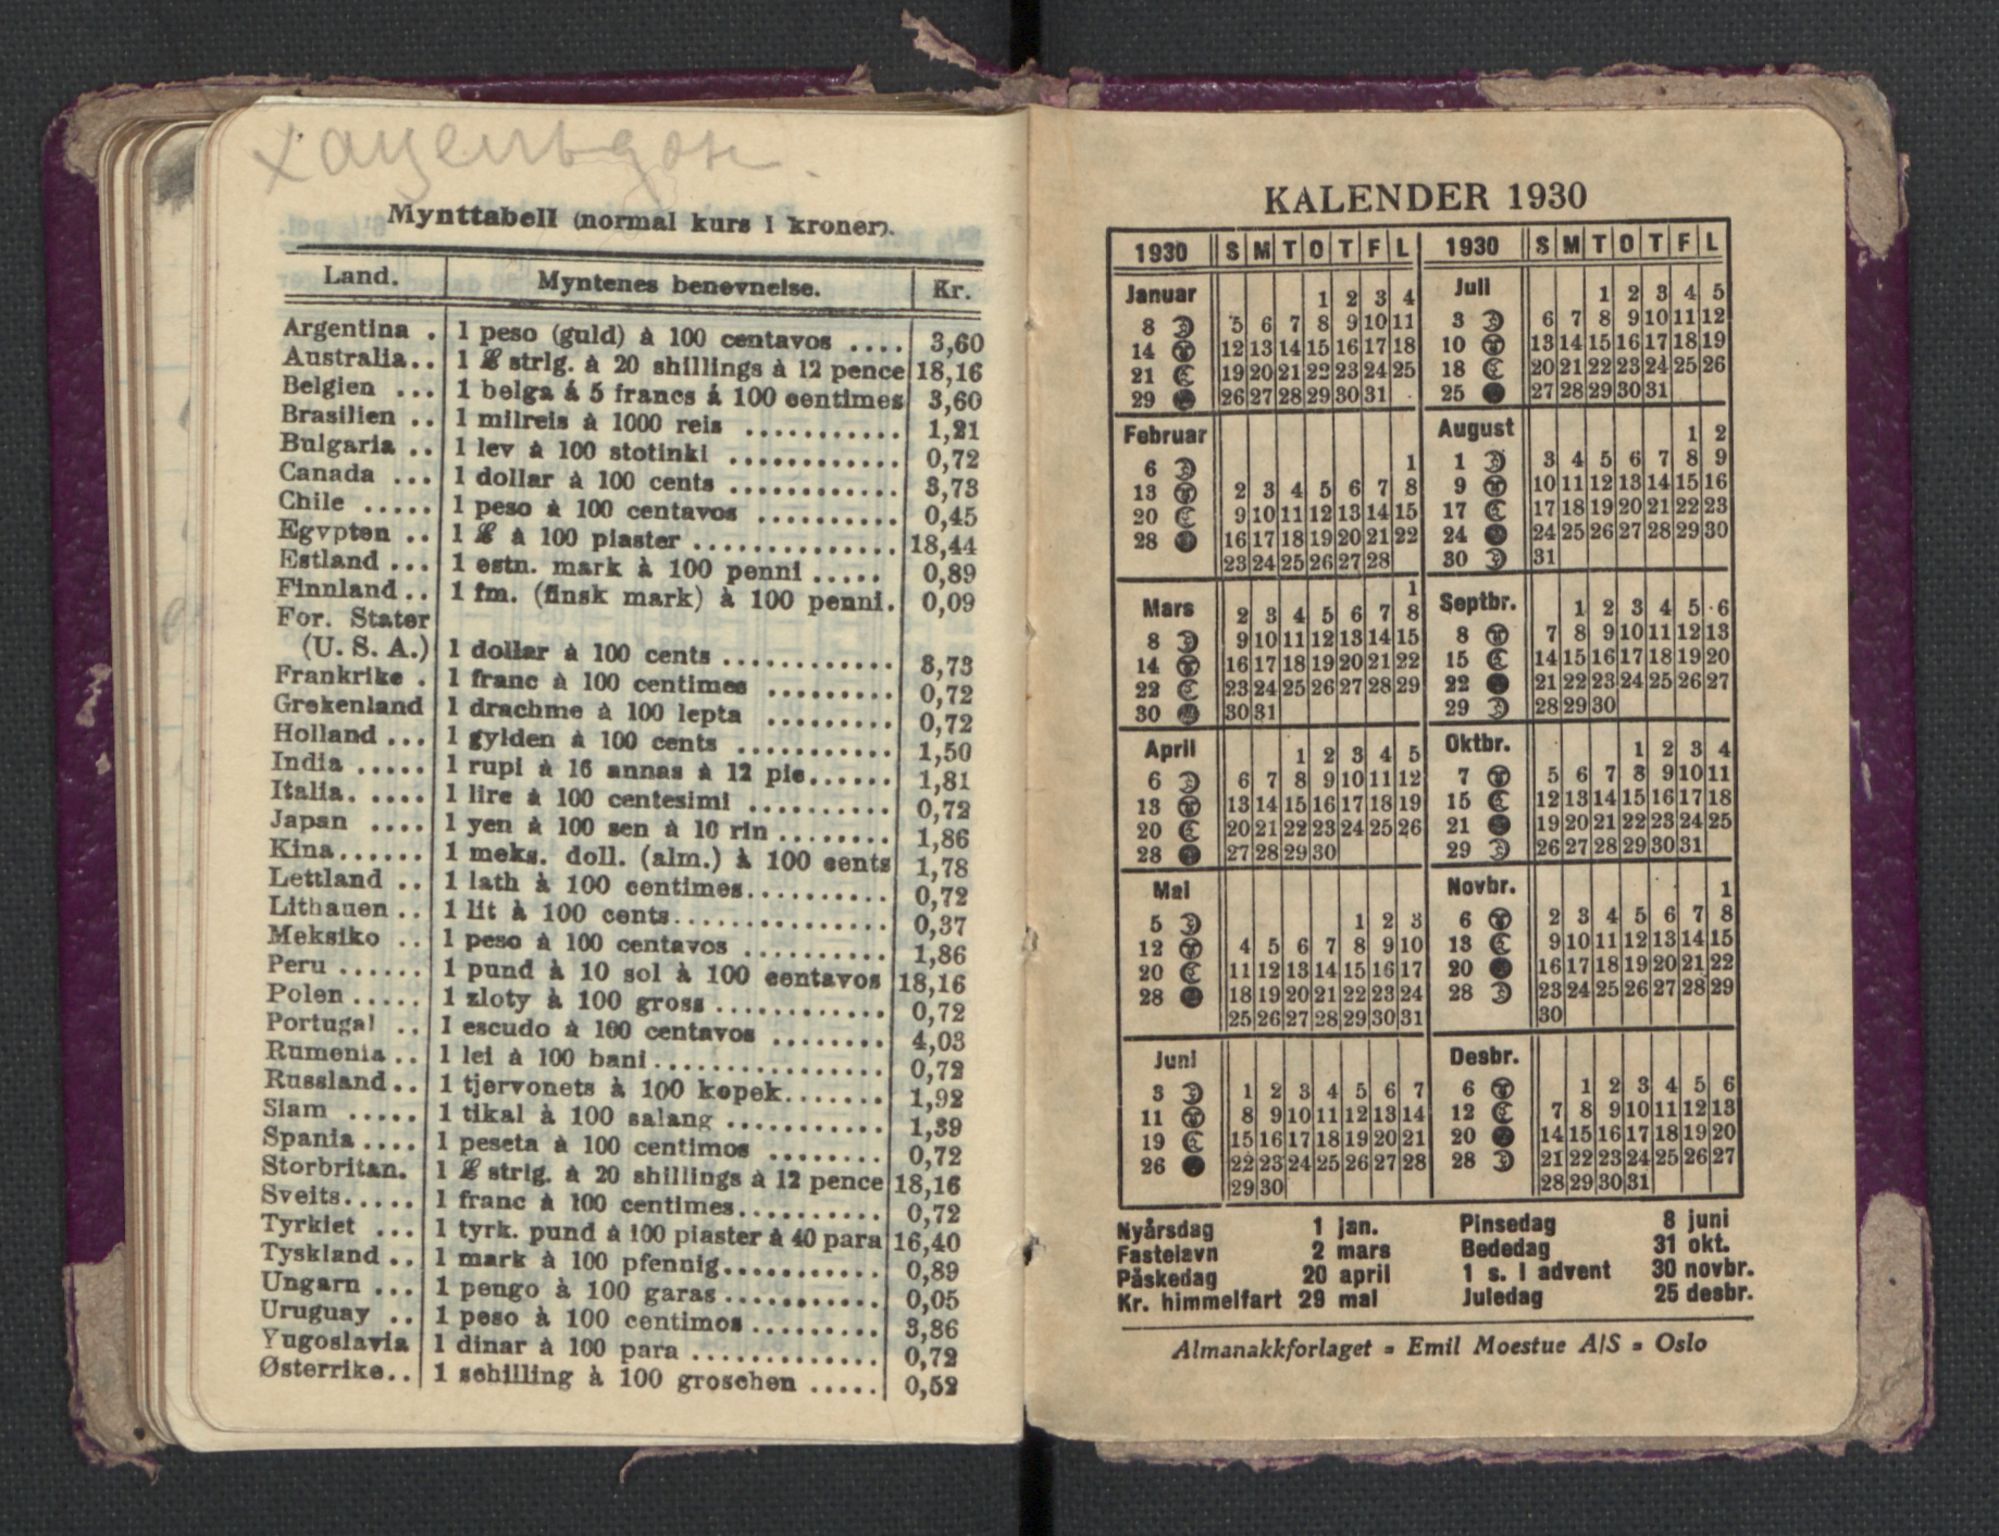 Mynttabell (normal kurs i kroner).
Land. Myntenes benevnelse. Kr.
Argentina . 1 peso (guld) à 100 centavos .... 3,60
Australia.. 1 £ strlg. à 20 shillings à 12 pence 18,16
Belgien ... 1 belga á 5 francs á 100 centimes 3,60
Brasilien .. 1 milreis à 1000 reis ........... 1,21
Bulgaria .. 1 lev à 100 stotinki ............ 0,72
Canada ... 1 dollar à 100 cents ............ 3,73
Chile ..... 1 peso à 100 centavos .......... 0,45
Egypten .. 1 £ à 100 piaster .............. 18,44
Estland ... 1 estn. mark à 100 penni ..... 0,89
Finnland .. 1 fm. (finsk mark) à 100 penni. 0,09
For. Stater
(U. S. A.) 1 dollar à 100 cents ............ 3,73
Frankrike . 1 franc à 100 centimes ......... 0,72
Grekenland 1 drachme à 100 lepta ......... 0,72
Holland ... 1 gylden à 100 cents ........... 1,50
India ..... 1 rupi à 16 annas à 12 pie...... 1,81
Italia. .... 1 lire à 100 centesimi .......... 0,72
Japan .... 1 yen à 100 sen à 10 rin ........ 1,86
Kina...... 1 meks. doll. (alm.) à 100 cents 1,78
Lettland .. 1 lath à 100 centimes.......... 0,72
Lithauen .. 1 lit à 100 cents................ 0,37
Meksiko .. 1 peso à 100 centavos .......... 1,86
Peru ...... 1 pund à 10 sol à 100 centavos 18,16
Polen ..... 1 zloty à 100 gross ............. 0,72
Portugal .. 1 escudo à 100 centavos ........ 4,03
Rumenia .. 1 lei à 100 bani ................ 0,72
Russland .. 1 tjervonets à 100 kopek....... 1,92
Siam ..... 1 tikal à 100 salang ............ 1,39
Spania .... 1 peseta à 100 centimos ........ 0,72
Storbritan. 1 £ strlg. à 20 shillings à 12 pence 18,16
Sveits..... 1 franc à 100 centimes.......... 0,72
Tyrkiet ... 1 tyrk. pund à 100 piaster à 40 para 16,40
Tyskland .. 1 mark à 100 pfennig........... 0,89
Ungarn ... 1 pengo à 100 garas ........... 0,05
Uruguay .. 1 peso à 100 centimos ......... 3,86
Yugoslavia 1 dinar à 100 para ............. 0,72
Østerrike.. 1 schilling à 100 groschen ..... 0,52
KALENDER 1930
1930 S M T O T F L
Januar 1 2 3 4
8 5 6 7 8 9 10 11
14 12 13 14 15 16 17 18
21 19 20 21 22 23 24 25
29 26 27 28 29 30 31
Februar
6 1
13 2 3 4 5 6 7 8
20 9 10 11 12 13 14 15
28 16 17 18 19 20 21 22
23 24 25 26 27 28
1
Mars 2 3 4 5 6 7 8
8 9 10 11 12 13 14 15
14 16 17 18 19 20 21 22
22 23 24 25 26 27 28 29
30 30 31
April 1 2 3 4 5
6 6 7 8 9 10 11 12
13 13 14 15 16 17 18 19
20 20 21 22 23 24 25 26
28 27 28 29 30
Mai
5 1 2 3
12 4 5 6 7 8 9 10
20 11 12 13 14 15 16 17
28 18 19 20 21 22 23 24
25 26 27 28 29 30 31
Juni
3 1 2 3 4 5 6 7
11 8 9 10 11 12 13 14
19 15 16 17 18 19 20 21
26 22 23 24 25 26 27 28
29 30
1930 S M T O T F L
Juli 1 2 3 4 5
3 6 7 8 9 10 11 12
10 13 14 15 16 17 18 19
18 20 21 22 23 24 25 26
25 27 28 29 30 31
August 1 2
1 3 4 5 6 7 8 9
9 10 11 12 13 14 15 16
17 17 18 19 20 21 22 23
24 24 25 26 27 28 29 30
30 31
Septbr. 1 2 3 4 5 6
8 7 8 9 10 11 12 13
15 14 15 16 17 18 19 20
22 21 22 23 24 25 26 27
29 28 29 30
Oktbr. 1 2 3 4
7 5 6 7 8 9 10 11
15 12 13 14 15 16 17 18
21 19 20 21 22 23 24 25
29 26 27 28 29 30 31
Novbr. 1
6 2 3 4 5 6 7 8
13 9 10 11 12 13 14 15
20 16 17 18 19 20 21 22
28 23 24 25 26 27 28 29
30
Desbr.
6 1 2 3 4 5 6
12 7 8 9 10 11 12 13
20 14 15 16 17 18 19 20
28 21 22 23 24 25 26 27
28 29 30 31
Nyårsdag 1 jan. Pinsedag 8 juni
Fastelavn 2 mars Bededag 31 okt.
Påskedag 20 april 1 s. i advent 30 novbr.
Kr. himmelfart 29 mai Juledag 25 desbr.
Almanakkforlaget - Emil Moestue A/S - Oslo